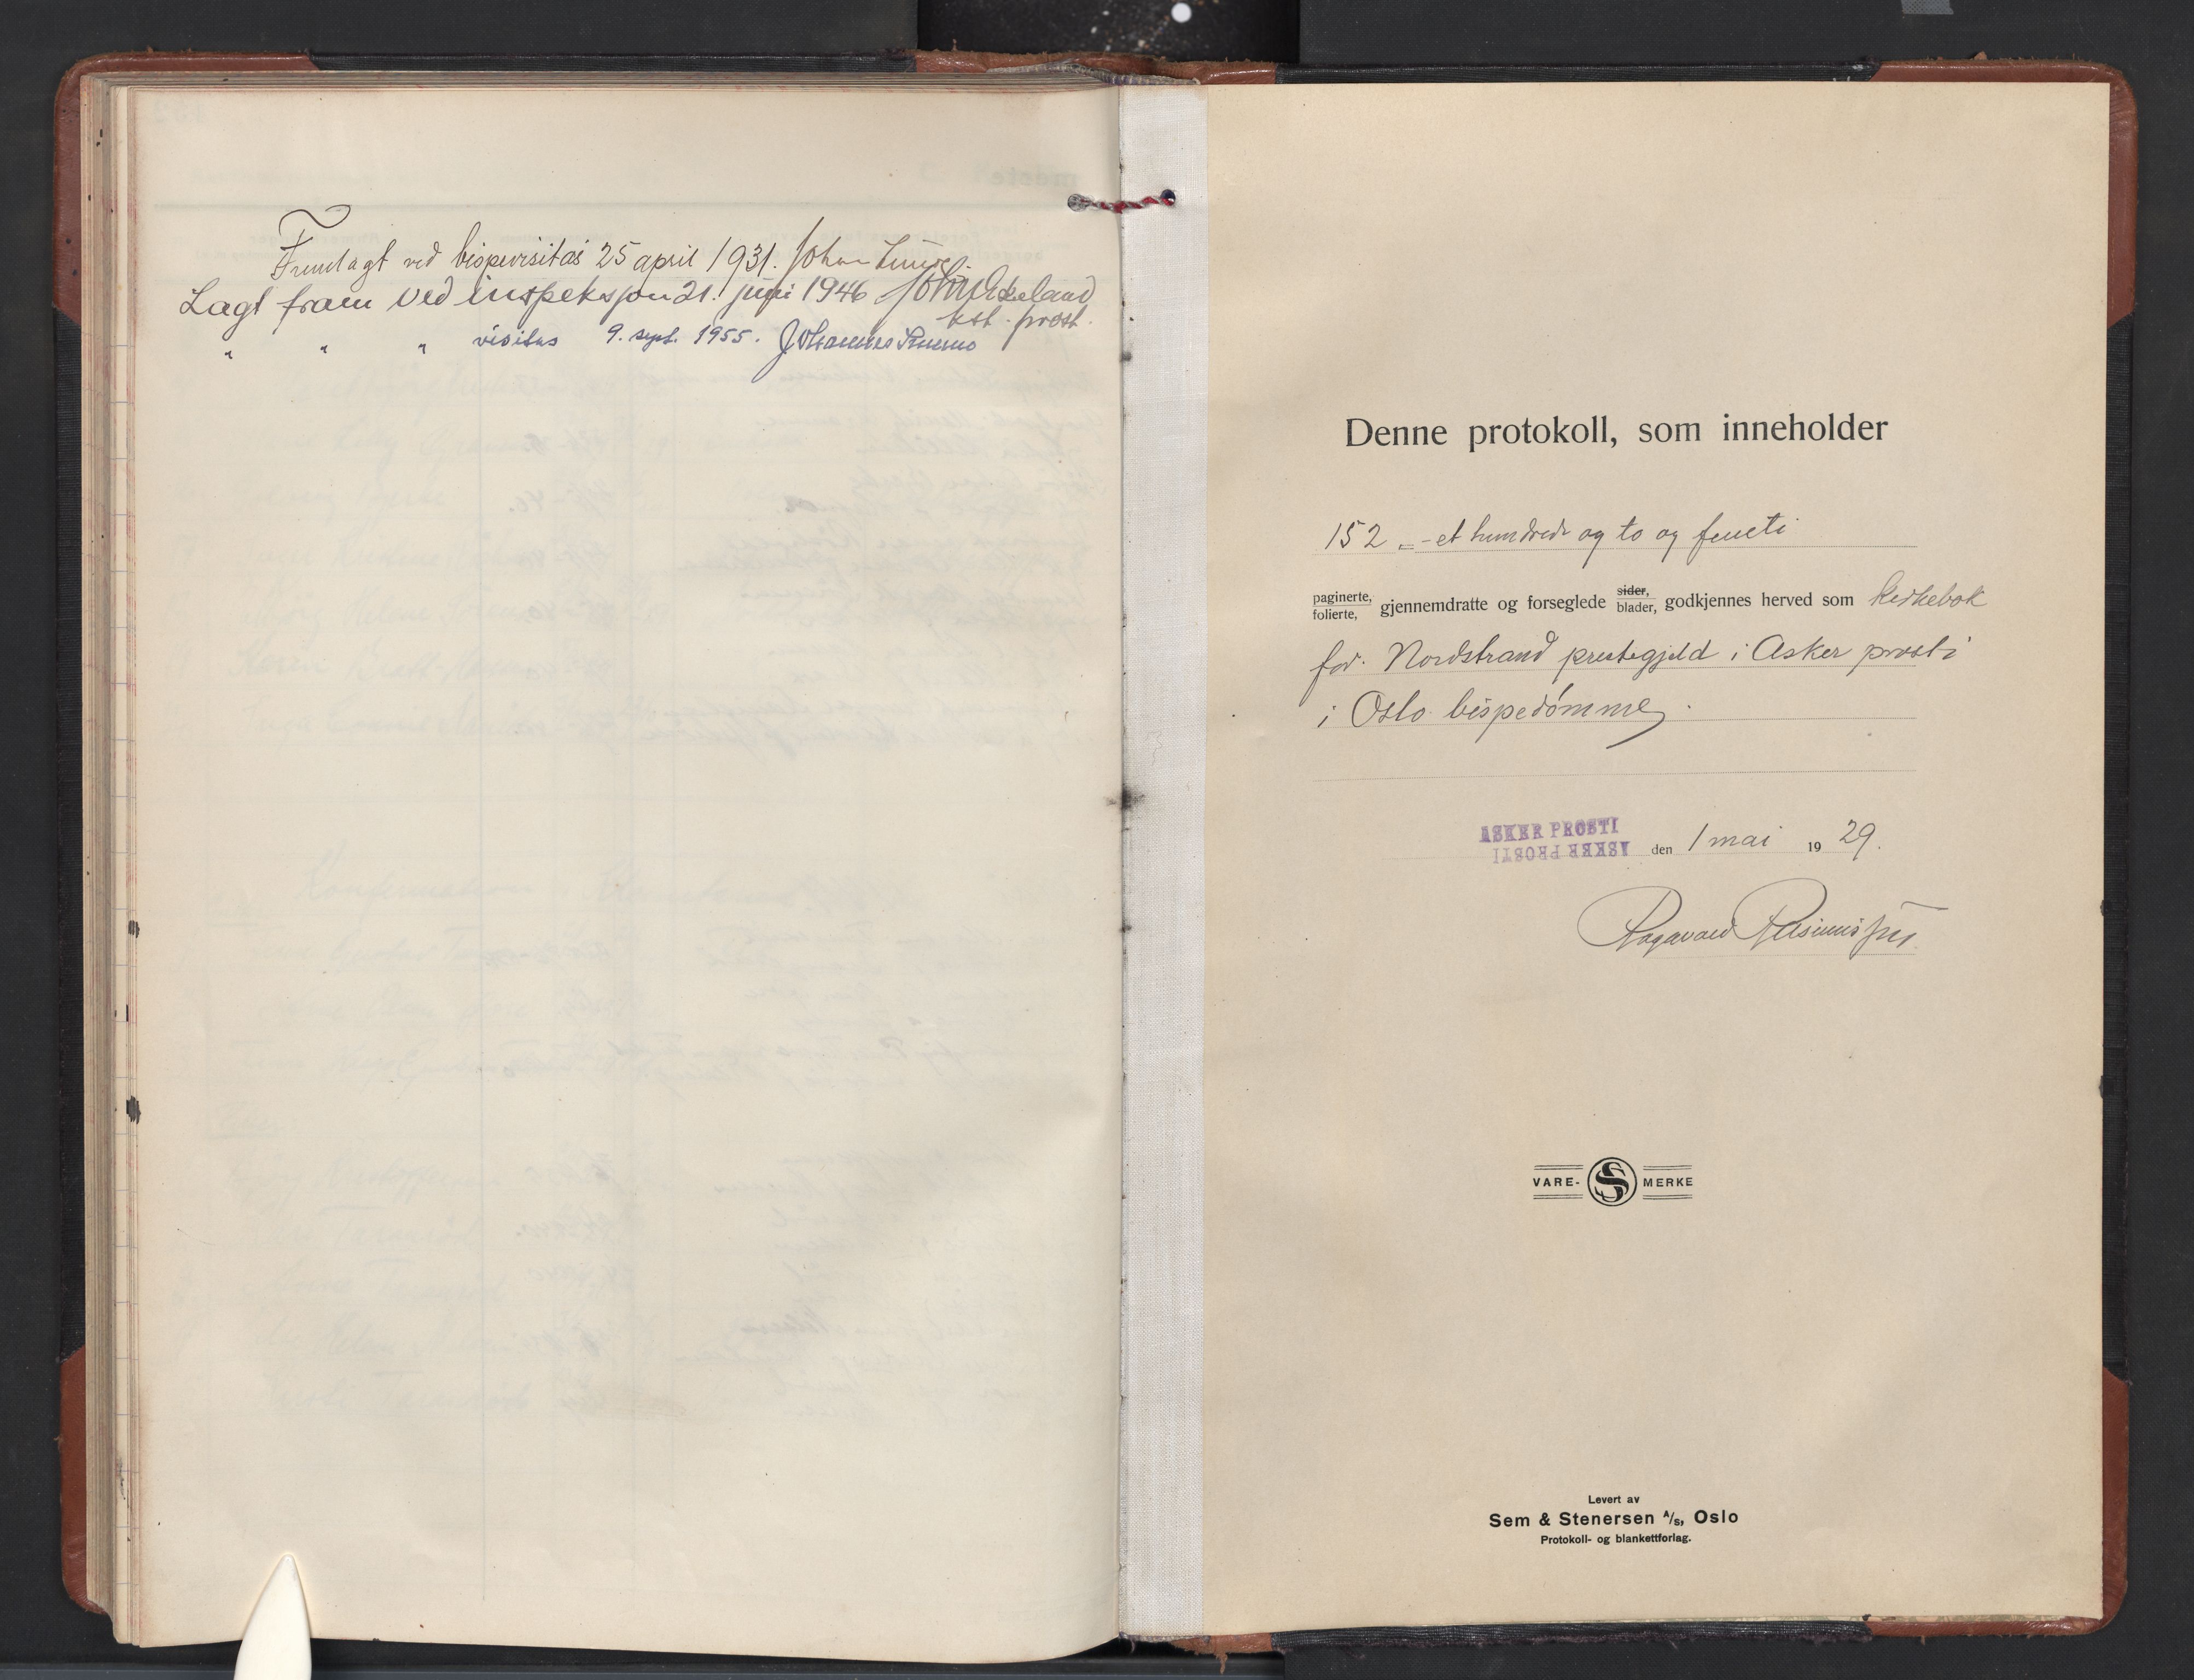 Fremlagt ved bispevisitas 25 april 1931. Johan Lunde
Lagt fram ved inspeksjon 21. juni 1946
kst. prost.
" " " visitas 9. sept. 1955. Johannes Smemo
Denne protokoll, som inneholder
152 = - et hundrede og to og femti
paginerte,
folierte, gjennemdratte og forseglede sider, blader, godkjennes herved som kirkebok
for Nordstrand prestegjeld i Asker prosti
i Oslo bispedömme.
ASKER PROSTI
ASKER PROSTI den 1 mai 1929.
VARE- S MERKE
Levert av
Sem & Stenersen A/S, Oslo
Protokoll- og blankettforlag.